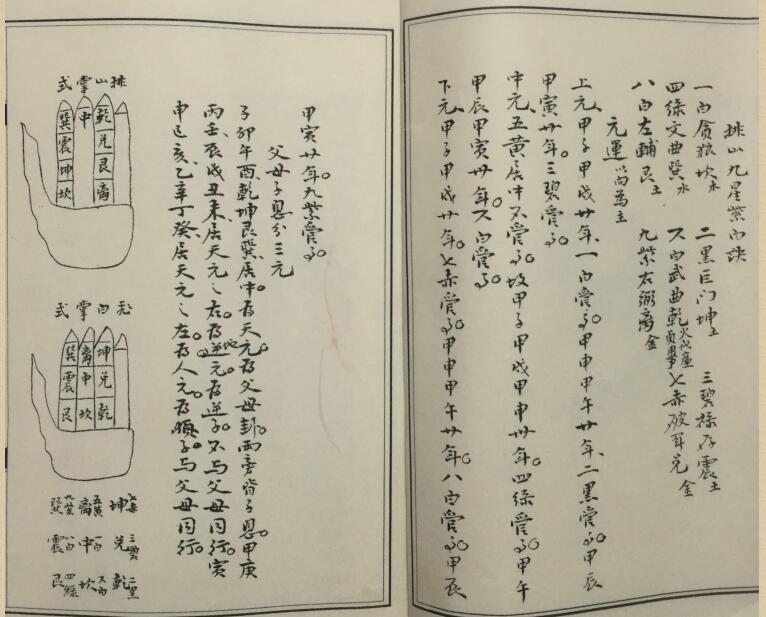 排山九星紫白訣
一白貪狼坎水 二黑巨门坤土 三碧祿存震土
四綠文曲巽水 六白武曲乾火 七赤破军兑金
八白左輔艮土 九紫右弼離金
元運以向為主
上元、甲子甲戌廿年、一白管局。甲申甲午廿年、二黑管局。甲辰
甲寅廿年。三碧管局。
中元、五黄居中不管局。故甲子甲戌甲申廿年。四綠管局。甲午
甲辰甲寅廿年。六白管局。
下元、甲子甲戌廿年。七赤管局。甲申甲午廿年。八白管局。甲辰
甲寅廿年。九紫管局。
父母子息分三元
子卯午酉、乾坤艮巽、居中。為天元。為父母卦。兩旁皆子息。甲庚
丙壬、辰戌丑未、居天元之右。為地元。為逆子。不与父母同行。寅
申巳亥、乙辛丁癸、居天元之左。為人元。為順子。与父母同行。
排山掌式
乾 中 巽
兑 震
艮 坤
離 坎
飛白掌式
坤 離 巽
兑 中 震
乾 坎 艮
七赤坤 五黄離 九紫巽
三碧兑 一白中 八白震
二黑乾 六白坎 四綠艮